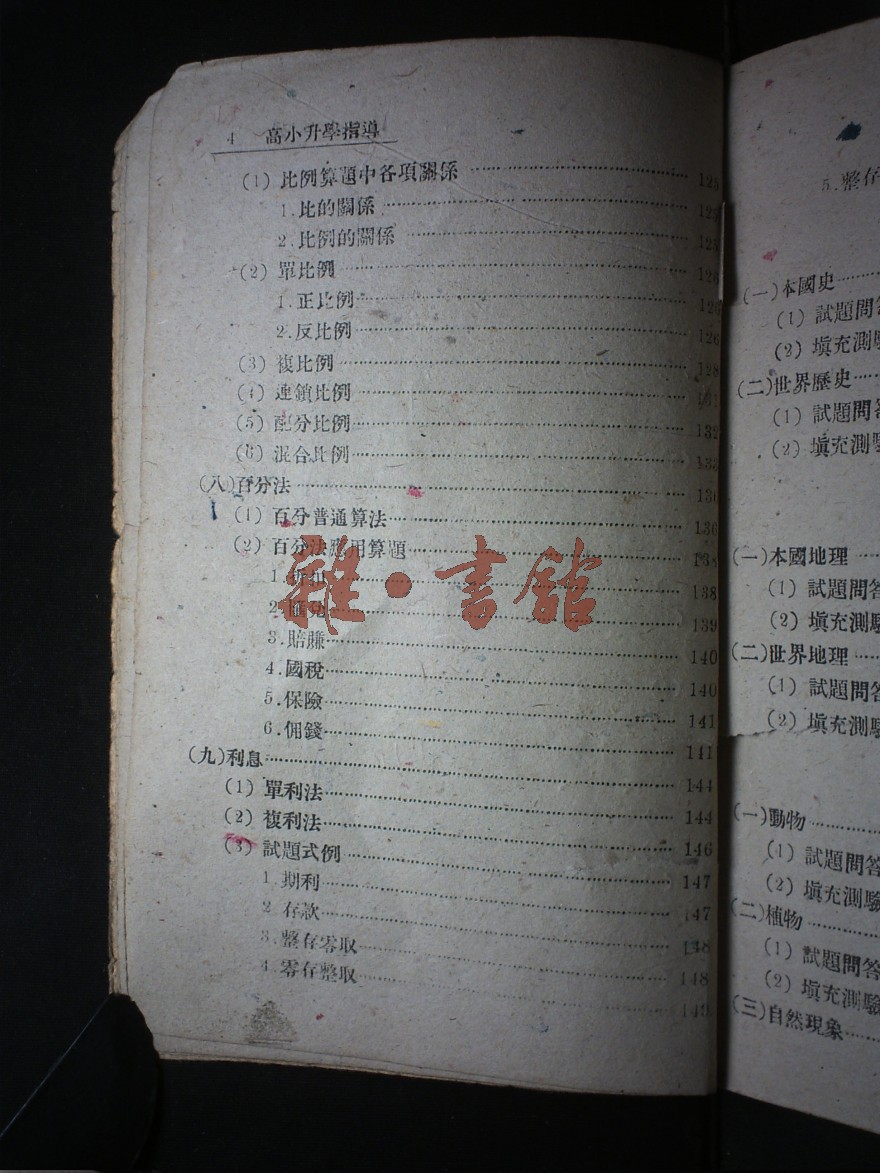 4 高小升學指導
(1) 比例算題中各項關係 125
1.比的關係 125
2.比例的關係 125
(2) 單比例 126
1.正比例 126
2.反比例 126
(3) 複比例 128
(4) 連鎖比例 131
(5) 配分比例 132
(6) 混合比例 133
(八)百分法 136
(1) 百分普通算法 136
(2) 百分法應用算題 138
1.折扣 138
2.匯兌 139
3.賠賺 140
4.國稅 140
5.保險 141
6.佣錢 141
(九)利息 144
(1) 單利法 144
(2) 複利法 146
(3) 試題式例 147
1.期利 147
2.存款 148
3.整存零取 148
4.零存整取 149
雜·書館
5.整存
(一)本國史
(1) 試題問答
(2) 填充測驗
(二)世界歷史
(1) 試題問答
(2) 填充測驗
(一)本國地理
(1) 試題問答
(2) 填充測驗
(二)世界地理
(1) 試題問答
(2) 填充測驗
(一)動物
(1) 試題問答
(2) 填充測驗
(二)植物
(1) 試題問答
(2) 填充測驗
(三)自然現象